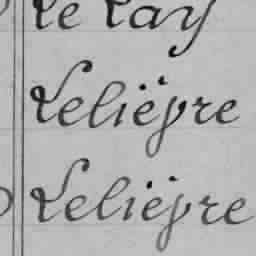 Le Lay
Lelièpre
Lelièpre